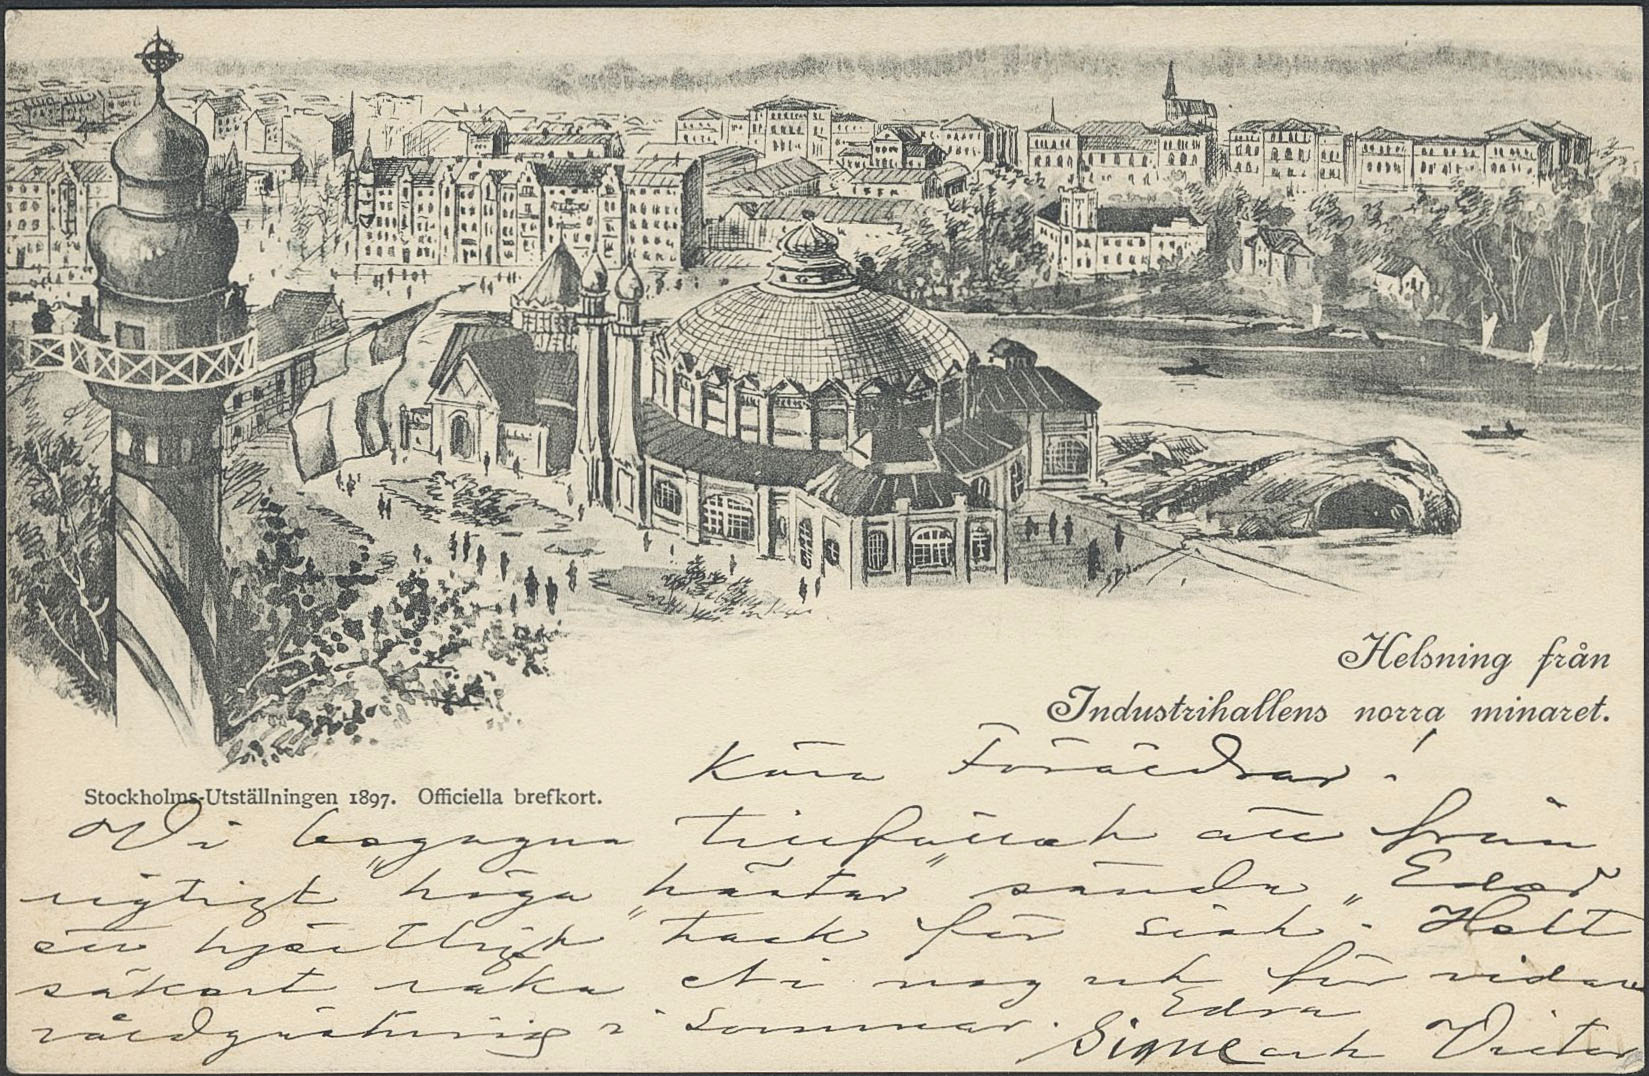 Helsning från
Industrihallens norra minaret.
Stockholms-Utställningen 1897. Officiella brefkort.
Kära Föräldrar!
Vi begagna tillfället att från
rigtigt "höga" "håll" sända Eder
ett hjertligt tack för sist. Helt
säkert råka Ni nog ut för vidare
våldgästning i sommar.
Edra
Signe och Victor